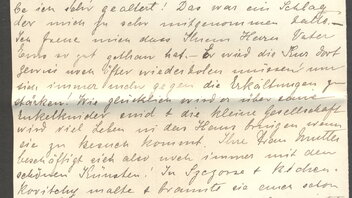 be ich sehr gealtert! Das war ein Schlag
der mich zu sehr mitgenommen hatte.-
Ich freue mich dass Ihrem Herrn Vater
Ems so gut gethan hat.- Er wird die Kur dort
gewiss noch öfter wiederholen müssen! um
sich immer mehr gegen die Erkältungen zu
stärken! Wie glücklich wird er über seine
Enkelkinder sein & die kleine Gesellschaft
wird viel Leben in das Haus bringen wenn
sie zu Besuch kommt. Ihre Frau Mutter
beschäftigt sich aber auch immer mit den
schönen Künsten! In &
malte & brannte sie auch schon